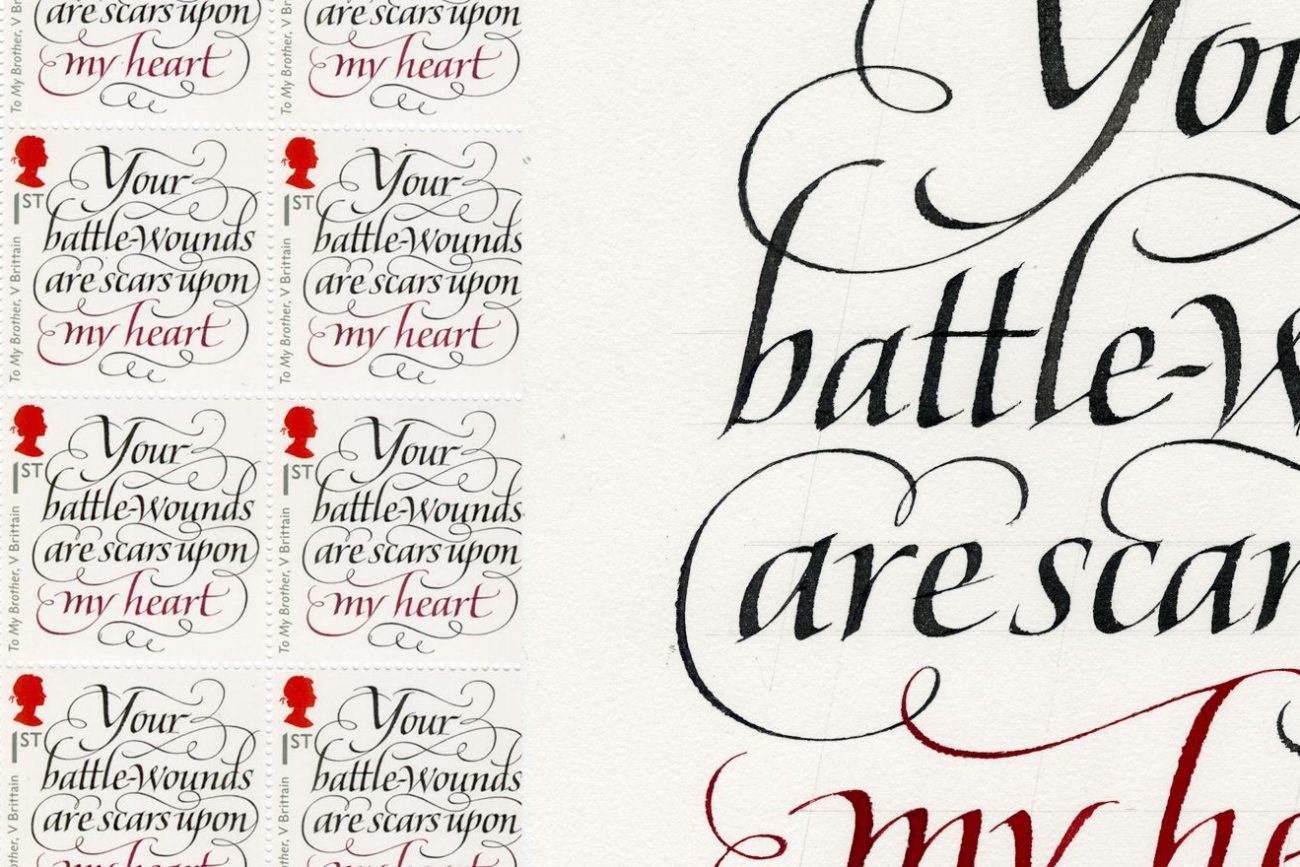 To My Brother, V Br
are scars upon
my heart
To My Brother, V Br
are scars upon
my heart
1ST
To My Brother, V Brittain
Your
battle-wounds
are scars upon
my heart
1ST
To My Brother, V Brittain
Your
battle-wounds
are scars upon
my heart
1ST
To My Brother, V Brittain
Your
battle-wounds
are scars upon
my heart
1ST
To My Brother, V Brittain
Your
battle-wounds
are scars upon
my heart
1ST
other, V Brittain
Your
battle-wounds
are scars upon
my heart
1ST
other, V Brittain
Your
battle-wounds
are scars upon
my heart
You
battle-w
are scar
my he